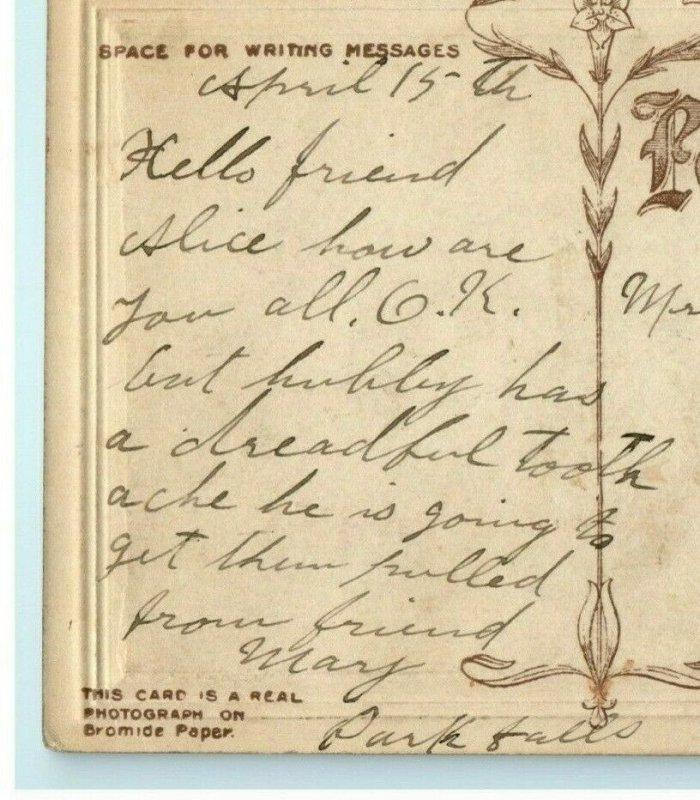 SPACE FOR WRITING MESSAGES
April 15th
Hello friend
Alice how are
you all. O.K.
but hubby has
a dreadful tooth
ache he is going to
get them pulled
from friend
Mary
Park Falls
THIS CARD IS A REAL
PHOTOGRAPH ON
Bromide Paper.
Mr